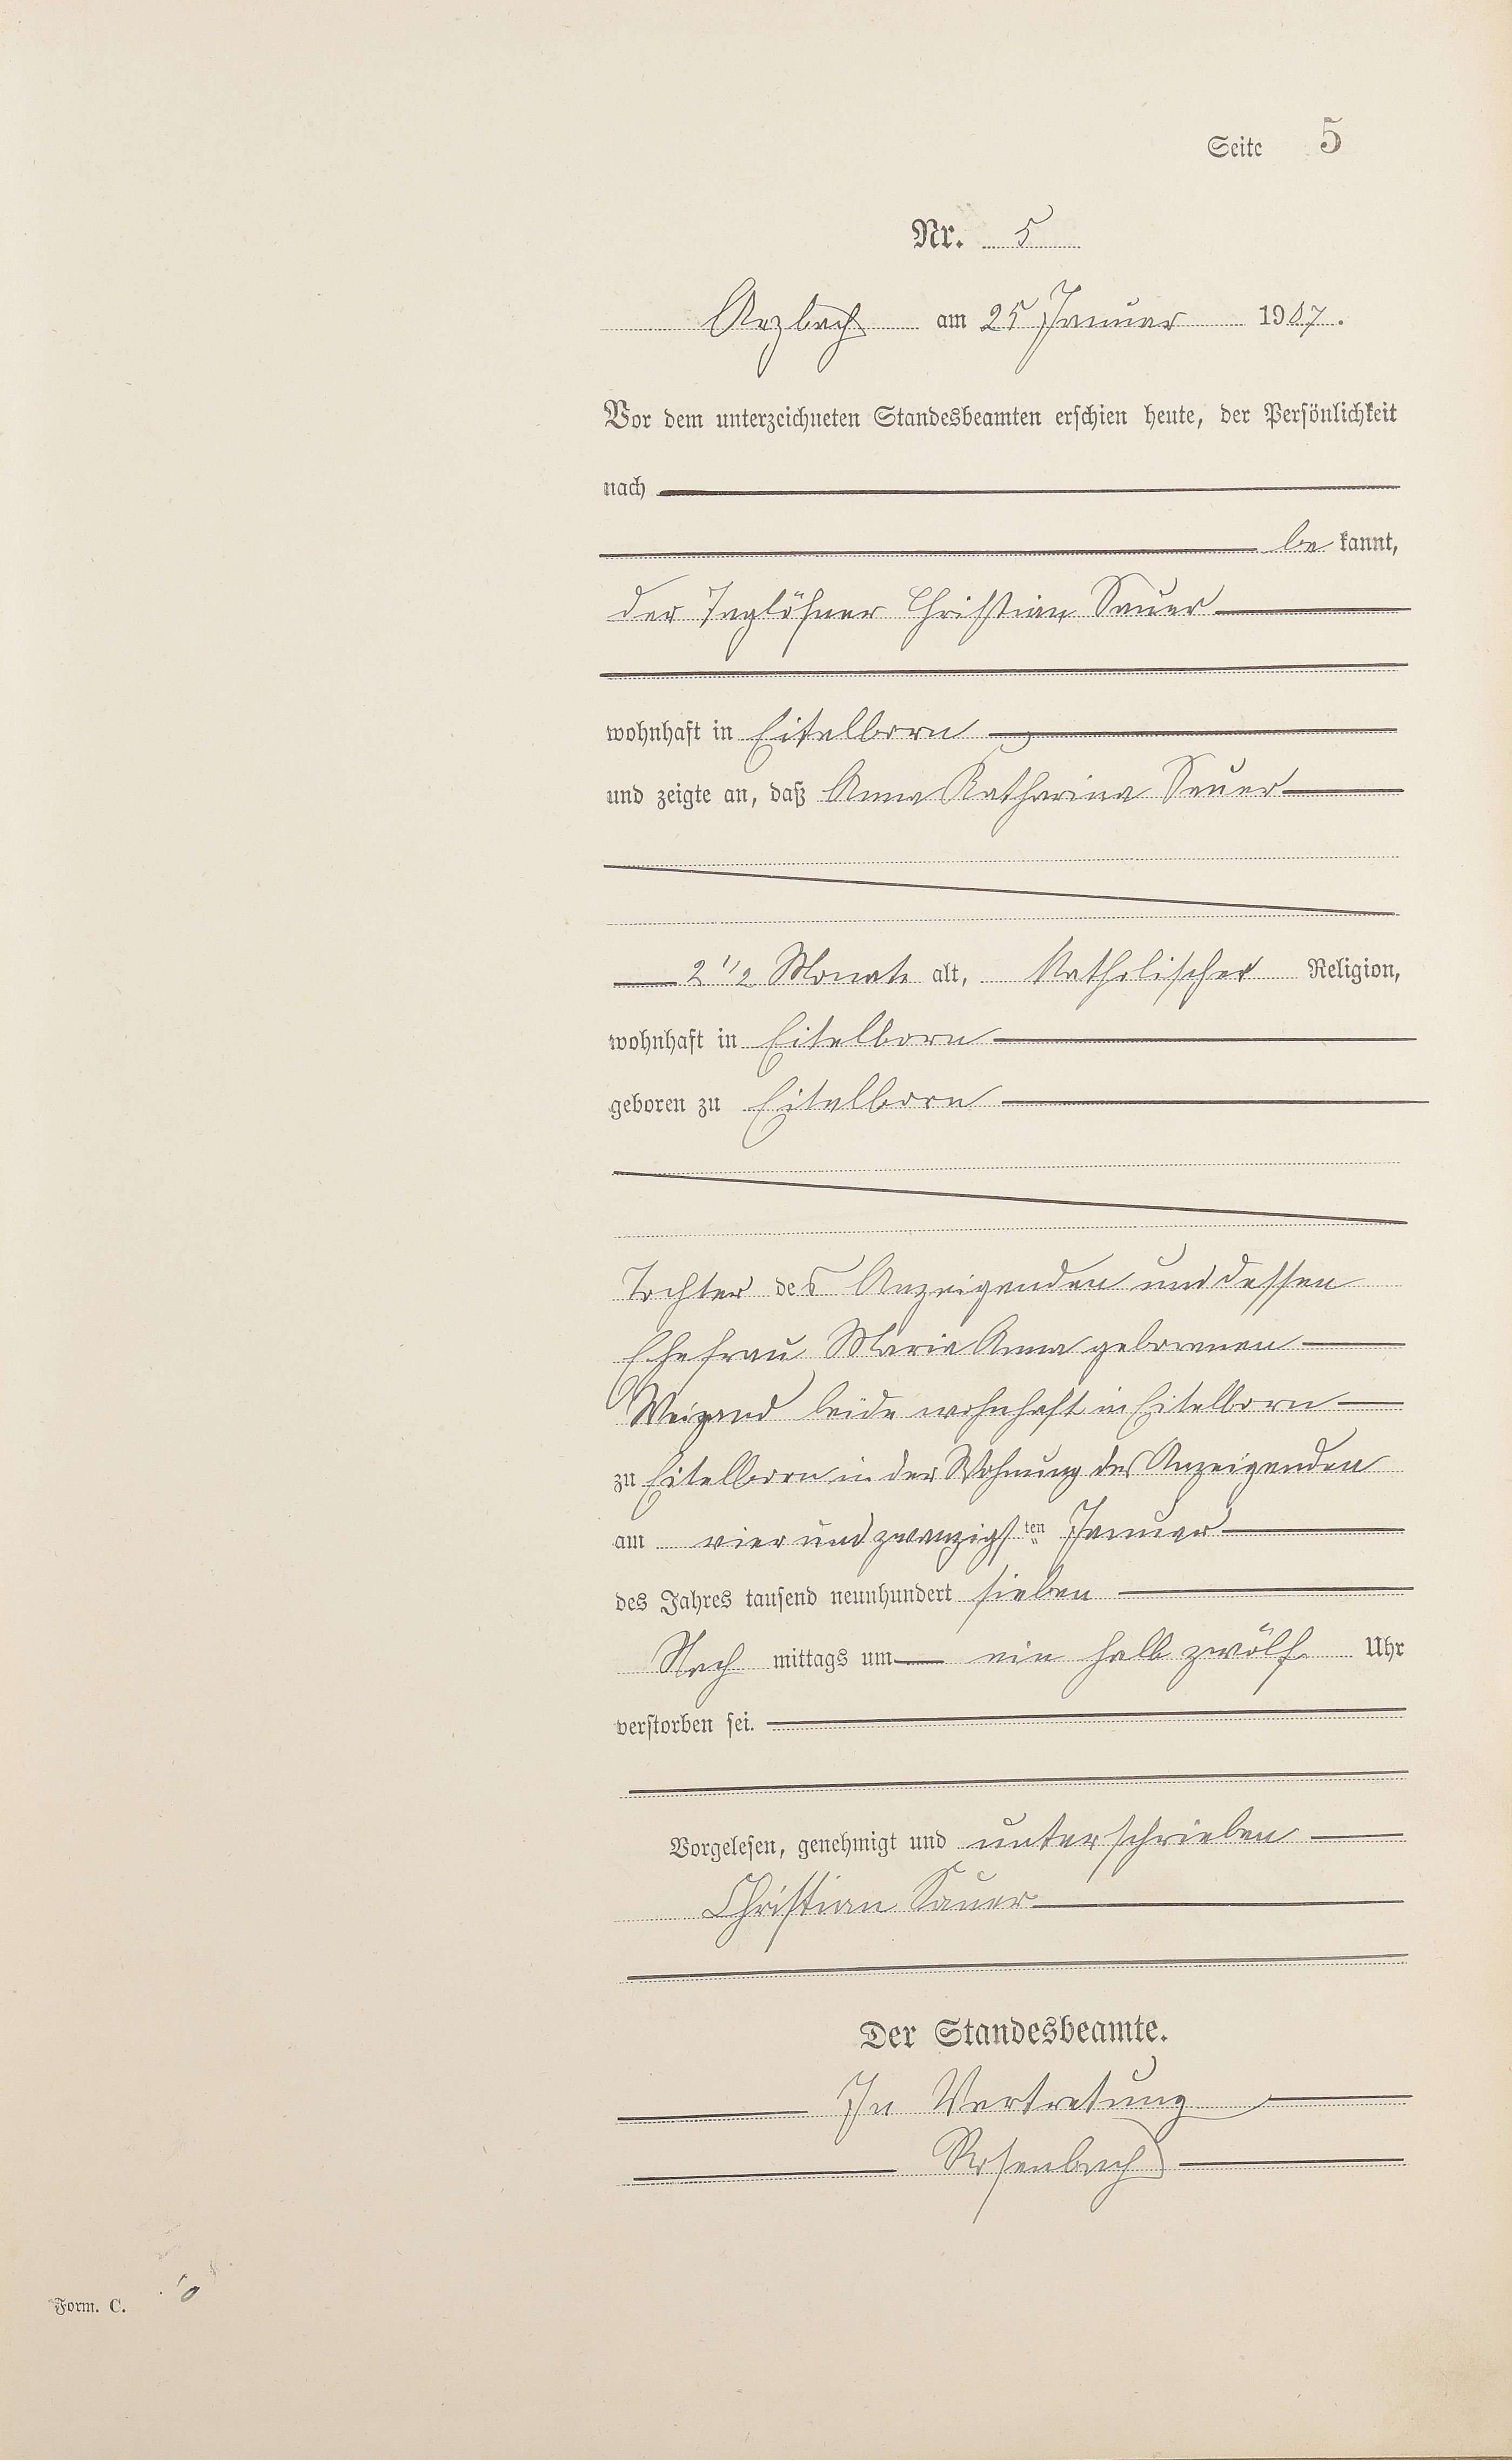 Seite 5
Nr. 5
Arzbach am 25 Januar 1907.
Vor dem unterzeichneten Standesbeamten erschien heute, der Persönlichkeit
nach
be kannt,
der Taglöhner Christian Sauer
wohnhaft in Eitelborn
und zeigte an, daß Anna Katharina Sauer
2 1/2 Monate alt, Katholischer Religion,
wohnhaft in Eitelborn
geboren zu Eitelborn
Tochter des Anzeigenden und dessen
Ehefrau Maria Anna geborenen
Weigand beide wohnhaft in Eitelborn
zu Eitelborn in der Wohnung des Anzeigenden
am vier und zwanzigsten Januar
des Jahres tausend neunhundert sieben
Nach mittags um ein halb zwölf Uhr
verstorben sei.
Vorgelesen, genehmigt und unterschrieben
Christian Sauer
Der Standesbeamte.
In Vertretung
Rosenbach
Form. C.